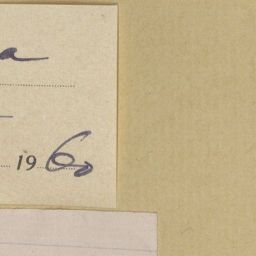 a
1960